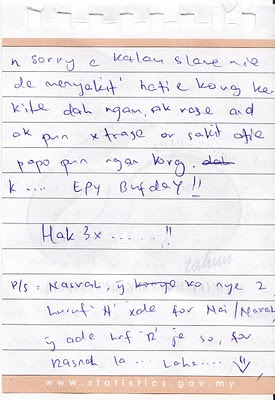 n sorry a kalau slave nie
de menyakit' hati e korg ke
kite dah ngan, Ak rase and
ak pun x trase or sakit atie
papo pun ngan korg.
k.... EPY BUfDAY !!
HaK 3x ...... !!
tahun
P/s : Nasrah, y ko nye 2
huruf 'H' xde for Nai/Morah,
y ade hrf 'R' je so, for
Nasrah la ... Laha....
www.statistics.gov.my